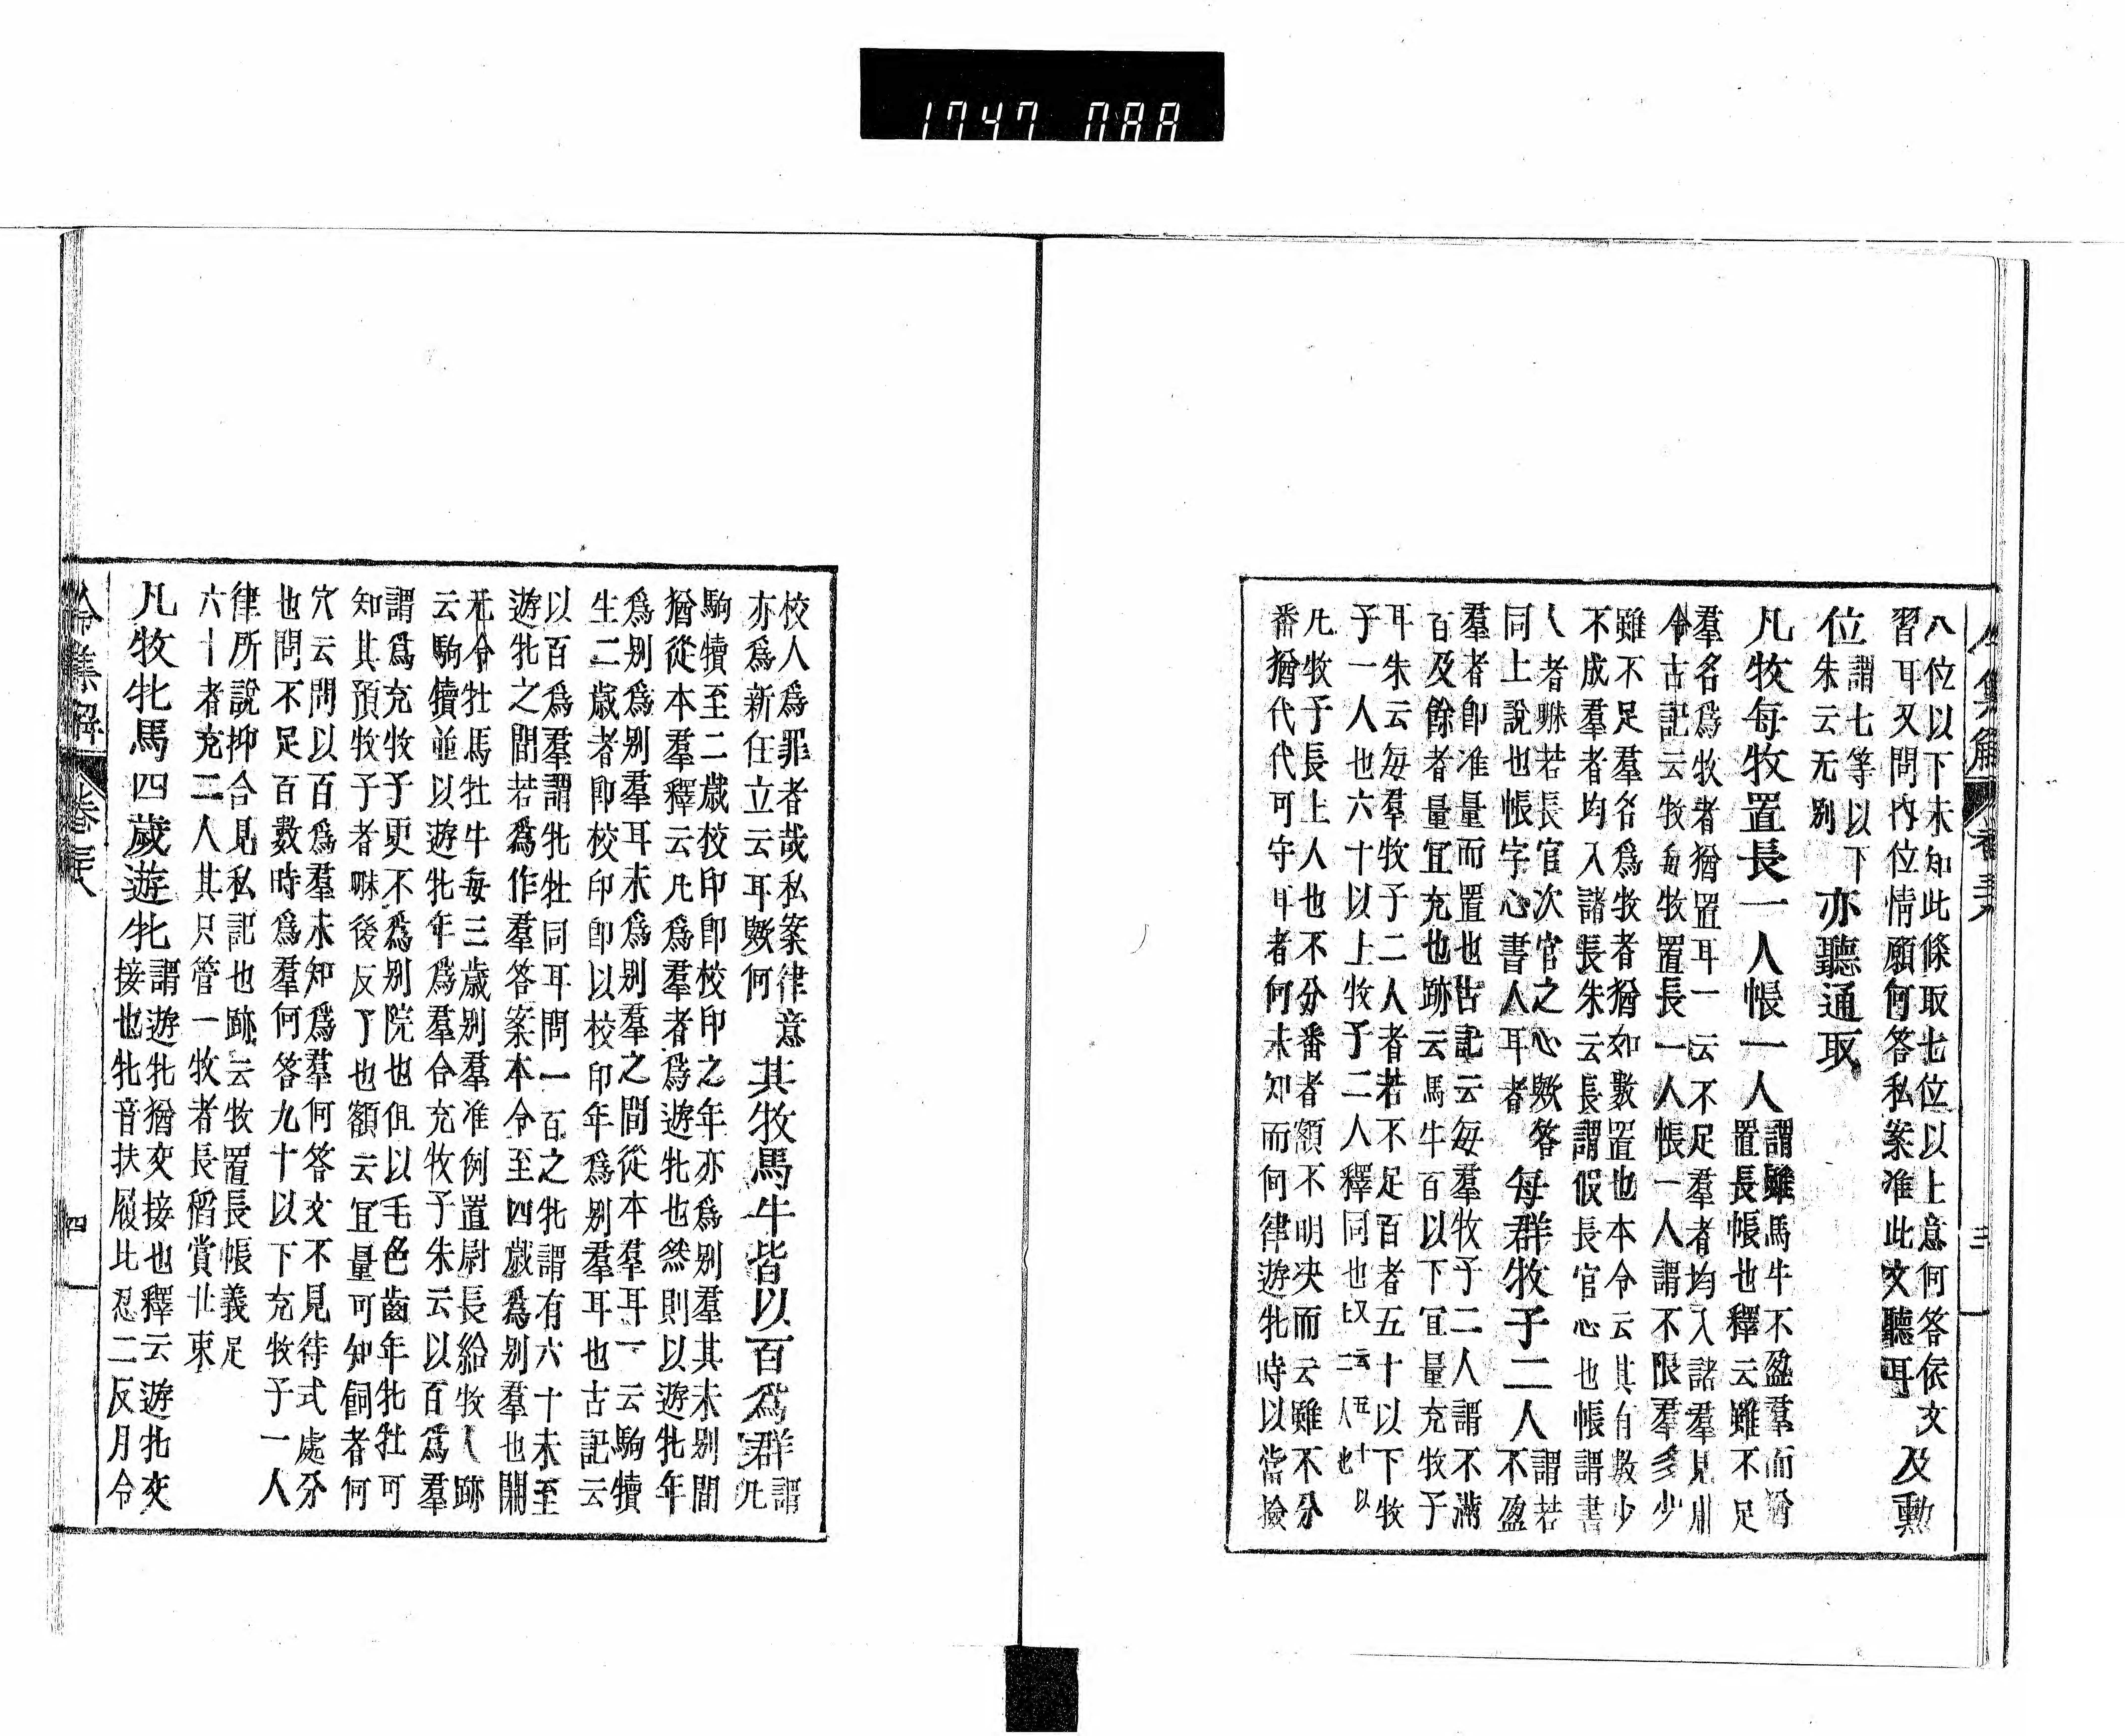 1747 088
令集解 卷三十八 三
八位以下未知此條取七位以上意何答依文
習耳又問內位情願何答私案准此文聽耳 及勳
位 謂七等以下
朱云无別 亦聽通取
凡牧每牧置長一人帳一人 謂雖馬牛不盈羣而猶
置長帳也釋云雖不足
羣名爲牧者猶置耳一云不足羣者均入諸羣見川
令古記云牧每牧置長一人帳一人謂不限羣多少
雖不足羣名爲牧者猶如數置也本令云其有數少
不成羣者均入諸長朱云長謂假長官心也帳謂書
人者歟若長官次官之心歟答
同上說也帳字心書人耳者 每群牧子二人 謂若
不盈
羣者卽准量而置也古記云每羣牧子二人謂不滿
百及餘者量宜充也跡云馬牛百以下宜量充牧子
耳朱云每羣牧子二人者若不足百者五十以下牧
子一人也六十以上牧子二人釋同也又云五十以
上二人也
凡牧子長上人也不分番者額不明決而云雖不分
番猶代代可守耳者何未知而何律遊牝時以當撿
校人爲罪者哉私案律意
亦爲新任立云耳歟何 其牧馬牛皆以百爲群 謂
凡
駒犢至二歲校印卽校印之年亦爲別羣其未別間
猶從本羣釋云凡爲羣者爲遊牝也然則以遊牝年
爲別爲別羣耳未爲別羣之間從本羣耳一云駒犢
生二歲者卽校印卽以校印年爲別羣耳也古記云
以百爲羣謂牝牡同耳問一百之牝謂有六十未至
遊牝之間若爲作羣答案本令至四歲爲別羣也開
元令牡馬牡牛每三歲別羣准例置尉長給牧人跡
云駒犢並以遊牝年爲羣合充牧子朱云以百爲羣
謂爲充牧子更不爲別院也但以毛色齒年牝牡可
知其預牧子者歟後反了也額云宜量可知飼者何
穴云問以百爲羣未知爲羣何答文不見待式處分
也問不足百數時爲羣何答九十以下充牧子一人
律所說抑合見私記也跡云牧置長帳義足
六十者充二人其只管一牧者長稻賞卝束
凡牧牝馬四歲遊牝 謂遊牝猶交接也釋云遊牝交
接也牝音扶履比忍二反月令
令集解 卷三十八 四